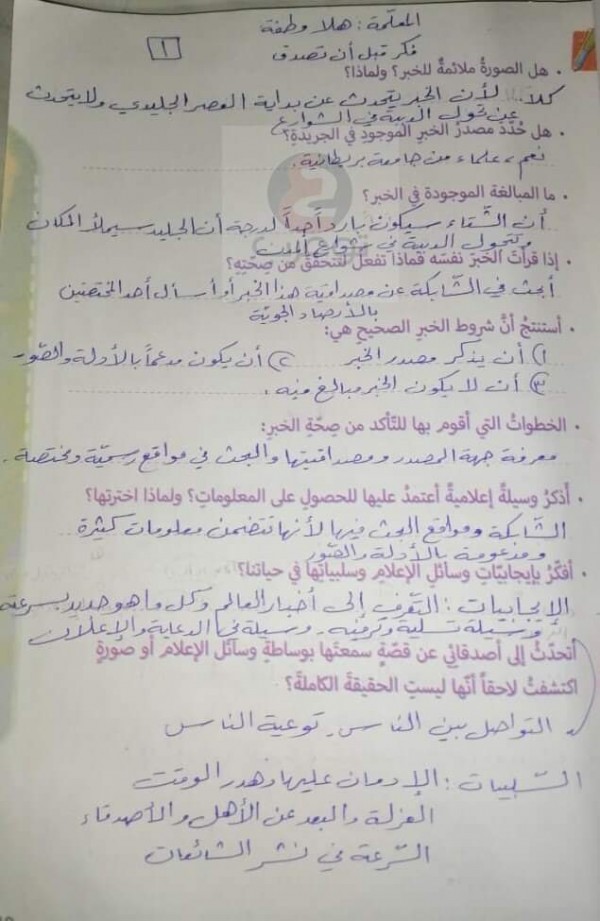 المعلّمة: هلا وطفة
١
فكر قبل أن تصدق
• هل الصورةُ ملائمةٌ للخبرِ؟ ولماذا؟
كلا... لأن الخبر يتحدث عن بداية العصر الجليدي ولا يتحدث
عن تجول الدببة في الشوارع
• هل حُدّدَ مصدرُ الخبرِ الموجودِ في الجريدةِ؟
نعم، علماء من جامعة بريطانية.
• ما المبالغة الموجودة في الخبر؟
أن الشّتاء سيكون بارداً جداً لدرجة أن الجليد سيملأ المكان
وتتجول الدببة في شوارع المدن
• إذا قرأتَ الخبرَ نفسَه فماذا تفعل لتتحقّقَ من صحّتِه؟
أبحث في الشّابكة عن مصداقية هذا الخبر أو أسأل أحد المختصين
بالأرصاد الجويّة
• أستنتجُ أنَّ شروطَ الخبرِ الصحيحِ هي:
١) أن يذكر مصدر الخبر ٢) أن يكون مدعماً بالأدلة والصّور
٣) أن لا يكون الخبر مبالغ فيه.
• الخطواتُ التي أقوم بها للتّأكد من صِحّةِ الخبرِ:
معرفة جهة المصدر ومصداقيتها والبحث في مواقع رسميّة ومختصة.
• أذكرُ وسيلةً إعلاميةً أعتمدُ عليها للحصولِ على المعلوماتِ؟ ولماذا اخترتها؟
الشّابكة ومواقع البحث فيها لأنها تتضمن معلومات كثيرة
ومدعومة بالأدلة والصّور
• أفكّرُ بإيجابيّاتِ وسائلِ الإعلامِ وسلبياتِها في حياتنا؟
الإيجابيات: التّعرف إلى أخبار العالم وكل ما هو جديد بسرعة
وسيلة تسلية وترفيه. وسيلة في الدعاية والإعلان
أتحدّثُ إلى أصدقائي عن قصّةٍ سمعتُها بوساطةِ وسائلِ الإعلامِ أو صورةٍ
اكتشفتُ لاحقاً أنّها ليستِ الحقيقةَ الكاملةَ؟
التواصل بين الناس. توعية الناس
السّلبيات: الإدمان عليها وهدر الوقت
العزلة والبعد عن الأهل والأصدقاء
السّرعة في نشر الشائعات